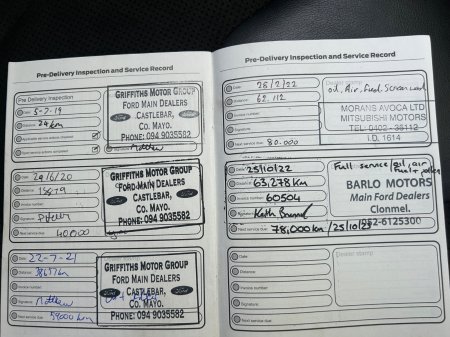 Pre-Delivery Inspection and Service Record
Pre Delivery Inspection
Date: 5-7-19
24km
GRIFFITHS MOTOR GROUP
FORD MAIN DEALERS
CASTLEBAR,
Co. MAYO.
PHONE: 094 9035582
Matthew
Date: 24/6/20
Distance:
Invoice number:
Signature:
Next service due: 40000
GRIFFITHS MOTOR GROUP
FORD MAIN DEALERS
CASTLEBAR,
Co. MAYO.
PHONE: 094 9035582
Date: 22-7-21
Distance:
Invoice number:
Signature: Matthew
Next service due: 59000 km
GRIFFITHS MOTOR GROUP
FORD MAIN DEALERS
CASTLEBAR,
Co. MAYO.
PHONE: 094 9035582
Pre-Delivery Inspection and Service Record
Date: 25/2/22
Distance: 62.112
Invoice number:
Signature:
Next service due: 80.000
Dealer stamp
oil, Air, Fuel, Screen wash
MORANS AVOCA LTD
MITSUBISHI MOTORS
TEL: 0402 - 35112
I.D. 1614
Date: 25/10/22
Distance: 63,278 km
Invoice number: 60504
Signature:
Next service due: 78,000 km / 25/10/23
Full service/oil, air
fuel + pollen
BARLO MOTORS
Main Ford Dealers
Clonmel.
052-6125300
Date:
Distance:
Invoice number:
Signature:
Next service due:
Dealer stamp